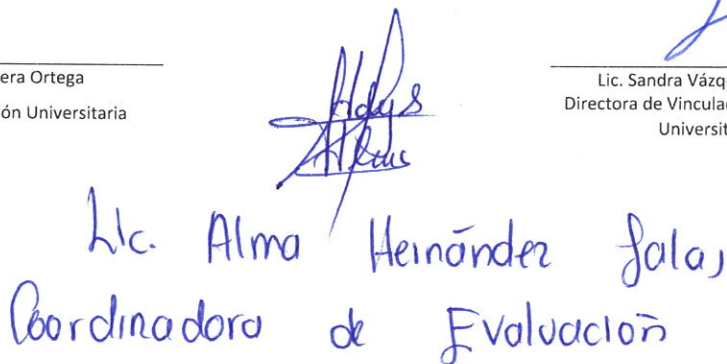 era Ortega
ón Universitaria
Lic. Sandra Vázq
Directora de Vincula
Universit
Lic. Alma Hernández Salas
Coordinadora de Evaluación